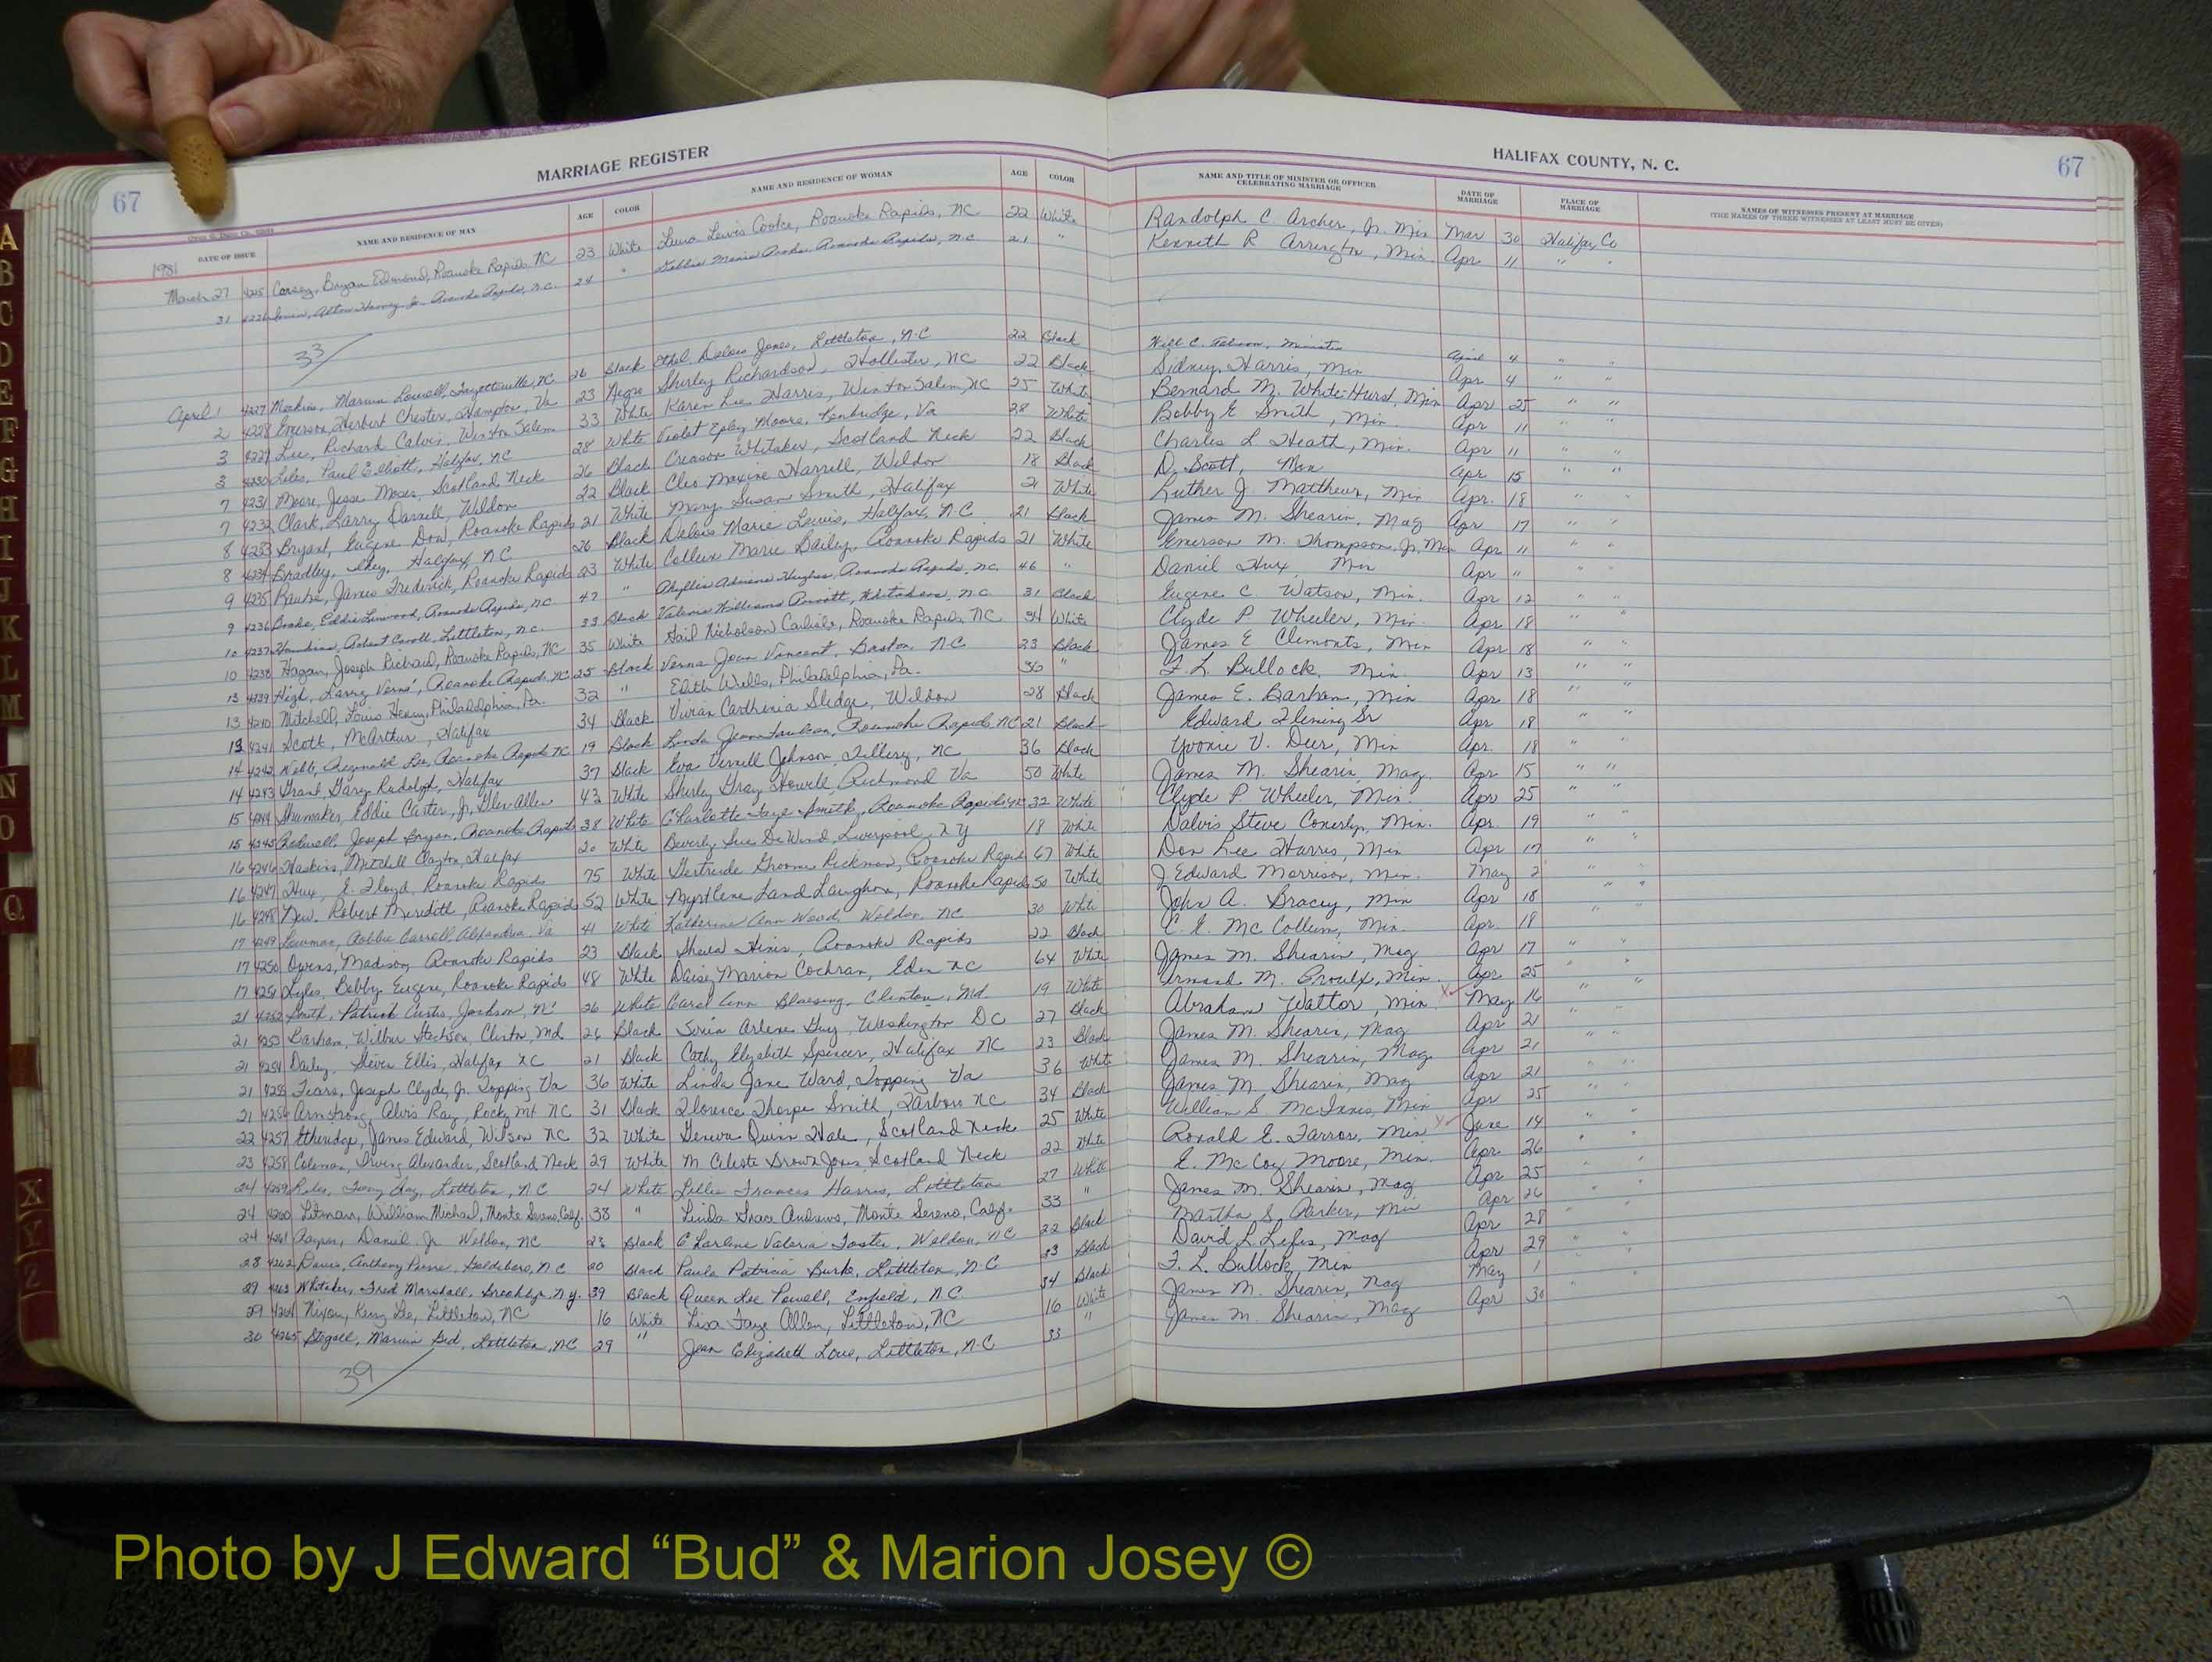 67 MARRIAGE REGISTER HALIFAX COUNTY, N. C. 67
DATE OF ISSUE NAME AND RESIDENCE OF MAN AGE COLOR NAME AND RESIDENCE OF WOMAN AGE COLOR NAME AND TITLE OF MINISTER OR OFFICER CELEBRATING MARRIAGE DATE OF MARRIAGE PLACE OF MARRIAGE NAMES OF WITNESSES PRESENT AT MARRIAGE (THE NAMES OF THREE WITNESSES AT LEAST MUST BE GIVEN)
1981
March 27 4225 Bryan Edmond, Roanoke Rapids, NC 23 White Lewis Cooke, Roanoke Rapids, NC 22 White Randolph C. Archer, Jr. Min Mar 30 Halifax Co
31 4226 Alton Harvey, Jr. Roanoke Rapids, N.C. 24 " Debbie Marie Roanoke Rapids, N.C. 21 " Kenneth R Arrington, Min. Apr 11 " "
33
April 1 4227 Marvin Lowell, Fayetteville, NC 26 Black Ethel Delois Jones, Littleton, N.C 22 Black Will C. Minister April 4 " "
2 4228 Emerson, Herbert Chester, Hampton, Va 23 Negro Shirley Richardson, Hollister, NC 22 Black Sidney Harris, Min Apr 4 " "
3 4229 Lee, Richard Calvin, Winston Salem 33 White Karen Lee Harris, Winston Salem, NC 25 White Bernard M. White-Hurst, Min Apr 25 " "
3 4230 Liles, Paul Elliott, Halifax, NC 28 White Violet Epley Moore, Kenbridge, Va 28 White Bobby E Smith, Min. Apr 11 " "
7 4231 Moore, Jesse Moses, Scotland Neck 26 Black Creason Whitaker, Scotland Neck 22 Black Charles L Heath, Min. Apr 11 " "
7 4232 Clark, Larry Darnell, Weldon 22 Black Cleo Maxine Harrell, Weldon 18 Black D. Scott, Min Apr 15 " "
8 4233 Bryant, Eugene Dow, Roanoke Rapids 21 White Mary Susan Smith, Halifax 21 White Luther J. Matthews, Min Apr. 18 " "
8 4234 Bradley, Halifax, NC 26 Black Delois Marie Lewis, Halifax, N.C 21 Black James M. Shearin, Mag Apr 17 " "
9 4235 James Frederick, Roanoke Rapids 23 White Colleen Marie Dailey, Roanoke Rapids 21 White Emerson M. Thompson, Jr, Min Apr 11 " "
9 4236 Eddie Linwood, Roanoke Rapids, NC 47 " Phyllis Adriene Hughes, Roanoke Rapids, NC. 46 " Daniel Hux, Min Apr " " "
10 4237 Hawkins, Robert Littleton, NC. 33 Black Valerie Williams Whitakers, N.C 31 Black Eugene C Watson, Min. Apr 12 " "
10 4238 Hagan, Joseph Richard, Roanoke Rapids, NC 35 White Gail Nicholson Carlisle, Roanoke Rapids, NC 34 White Clyde P. Wheeler, Min. Apr 18 " "
13 4239 High, Larry Verne', Roanoke Rapids, NC 25 Black Verna Jean Vincent, Gaston, N.C 23 Black James E Clemonts, Min Apr 18 " "
13 4240 Mitchell, Louis Henry, Philadelphia, Pa. 32 " Edith Wells, Philadelphia, Pa. 36 " F. L. Bullock, Min. Apr 13 " "
13 4241 Scott, McArthur, Halifax 34 Black Vivian Carthenia Sledge, Weldon 28 Black James E. Barham, Min Apr 18 " "
14 4242 Webb, Reginald Lee, Roanoke Rapids NC 19 Black Linda Jean Roanoke Rapids, NC 21 Black Edward Fleming Sr Apr 18 " "
14 4243 Grant, Gary Rudolph, Halifax 37 Black Eva Vernell Johnson, Tillery, NC 36 Black Yvonie V. Deer, Min Apr. 18 " "
15 4244 Shumaker, Eddie Carter, Jr, Glen Allen 43 White Shirley Gray Howell, Richmond Va 50 White James M. Shearin, Mag. Apr 15 " "
15 4245 Joseph Bryan, Roanoke Rapids 38 White Charlotte Faye Smith, Roanoke Rapids, NC 32 White Clyde P. Wheeler, Min. Apr 25 " "
16 4246 Haskins, Mitchell Clayton, Halifax 20 White Beverly Sue DeWind, Liverpool, NY 18 White Dalvis Steve Conerly, Min. Apr. 19 " "
16 4247 Hux, E. Lloyd, Roanoke Rapids 75 White Gertrude Groome Pickman, Roanoke Rapids 67 White Don Lee Harris, Min Apr 17 " "
16 4248 New, Robert Meredith, Roanoke Rapids 52 White Myrtlene Land Laughon, Roanoke Rapids 50 White J Edward Morrison, Min. May 2 " "
17 4249 Bobbie Carroll, Alexandria, Va 41 White Katherine Ann Wood, Weldon, NC 30 White John A. Bracey, Min Apr 18 " "
17 4250 Owens, Madison, Roanoke Rapids 23 Black Sheila Roanoke Rapids 22 Black C. E. McCollum, Min. Apr. 18 " "
17 4251 Lyles, Bobby Eugene, Roanoke Rapids 48 White Daisy Marion Cochran, Eden NC 64 White James M. Shearin, Mag Apr 17 " "
21 4252 Patrick Curtis, Jackson, NC 26 White Carol Ann Clinton, Md. 19 White Armand M. Proulx, Min. Apr. 25 " "
21 4253 Barham, Wilbur Clinton Md 26 Black Arlene Guy, Washington DC 27 Black Abraham Walton, Min. X✓ May 16 " "
21 4254 Dailey, Steven Ellis, Halifax NC 21 Black Cathy Elizabeth Spencer, Halifax NC 23 Black James M. Shearin, Mag Apr 21 " "
21 4255 Fears, Joseph Clyde, Jr. Topping Va 36 White Linda Jane Ward, Topping Va 36 White James M. Shearin, Mag. Apr 21 " "
21 4256 Armstrong, Alvis Ray, Rocky Mt NC 31 Black Florence Thorpe Smith, Tarboro NC 34 Black James M. Shearin, Mag Apr 21 " "
22 4257 Etheridge, James Edward, Wilson NC 32 White Geneva Quinn Hale, Scotland Neck 25 White William S. McInnis, Min Apr 25 " "
23 4258 Coleman, Irving Alexander, Scotland Neck 29 White M. Celeste Brown Jones, Scotland Neck 22 White Ronald E. Farror, Min X✓ June 14 " "
24 4259 Littleton, N.C 24 White Lillie Frances Harris, Littleton 27 White E. McCoy Moore, Min. Apr. 26 " "
24 4260 Litman, William Michael, Monte Sereno, Calif. 38 " Linda Grace Andrews, Monte Sereno, Calif. 33 " James M. Shearin, Mag Apr 25 " "
24 4261 Daniel Jr Weldon, NC 23 Black Charlene Valeria Foster, Weldon, NC 22 Black Martha S. Parker, Min Apr 26 " "
28 4262 Davis, Anthony Pierre, Goldsboro, N.C 20 Black Paula Patricia Burke, Littleton, N.C 23 Black David L. Mag Apr 28 " "
29 4263 Whitaker, Fred Marshall, Brooklyn, N.Y. 39 Black Queen Lee Powell, Enfield, N.C. 34 Black F. L. Bullock, Min Apr 29 " "
29 4264 Nixon, Kerry Lee, Littleton, NC 16 White Lisa Faye Allen, Littleton, NC 16 White James M. Shearin, Mag May 1 " "
30 4265 Stegall, Marvin Littleton, NC 29 " Jean Elizabeth Love, Littleton, N.C 33 " James M. Shearin, Mag Apr 30 " "
39
A
B
C
D
E
F
G
H
I
J
K
L
M
N
O
Q
X
Y
Z
Photo by J Edward “Bud” & Marion Josey ©